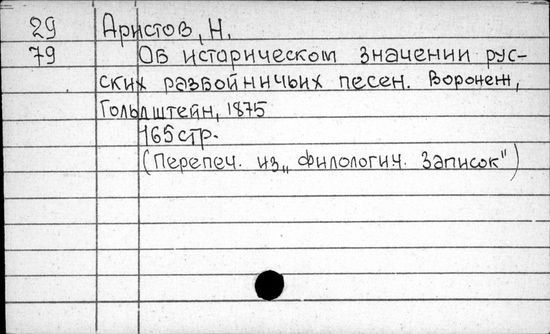 29 Аристов, Н.
79 Об историческом значении рус-
ских разбойничьих песен. Воронеж,
Гольдштейн, 1875
165 стр.
(Перепеч. из „Филологич. Записок")